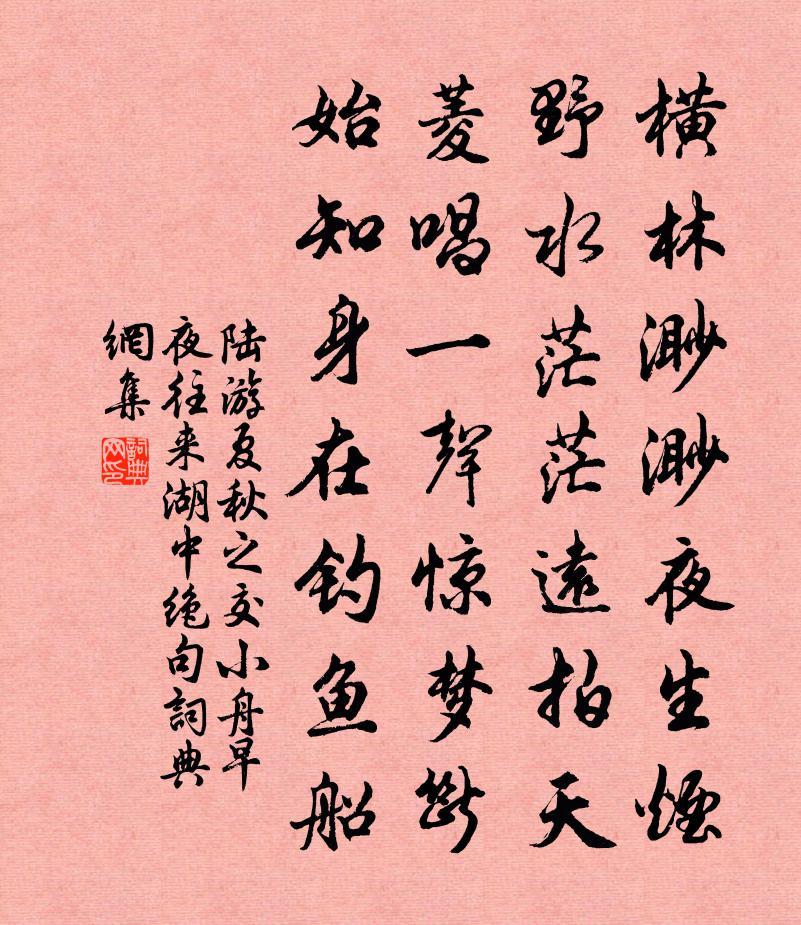 橫林渺渺夜生煙
野水茫茫遠拍天
菱唱一聲惊梦斷
始知身在钓鱼船
陆游夏秋之交小舟早
夜往来湖中绝句詞典
網集
詞典
网印